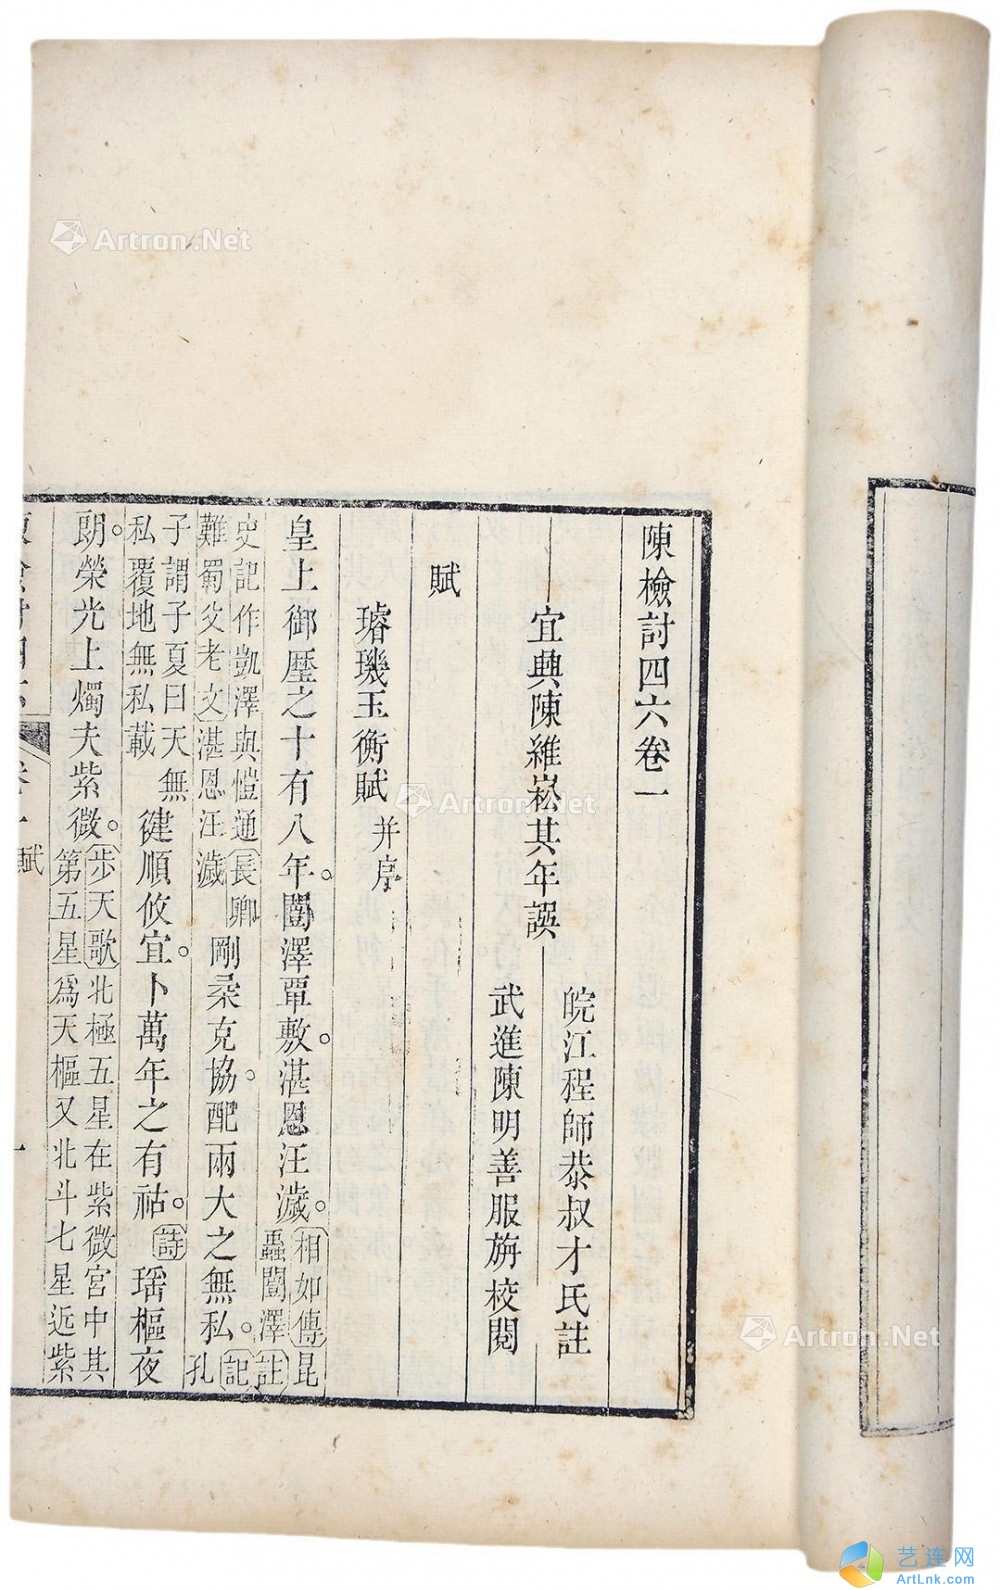 陳檢討四六卷一
宜興陳維崧其年譔
皖江程師恭叔才氏註
武進陳明善服旃校閱
賦
璿璣玉衡賦 并序
皇上御歷之十有八年。闓澤覃敷。湛恩汪濊。相如傳昆
蟲闓澤註
史記作凱澤與愷通長卿
難蜀父老文湛恩汪濊
剛柔克協。配兩大之無私。記孔
子謂子夏曰天無
私覆地無私載
健順攸宜。卜萬年之有祜。詩
瑶樞夜
朗。榮光上燭夫紫微。步天歌北極五星在紫微宮中其
第五星爲天樞又北斗七星近紫
卷一 賦
一
Artron.Net
Artron.Net
Artron.Net
艺连网
ArtLnk.com